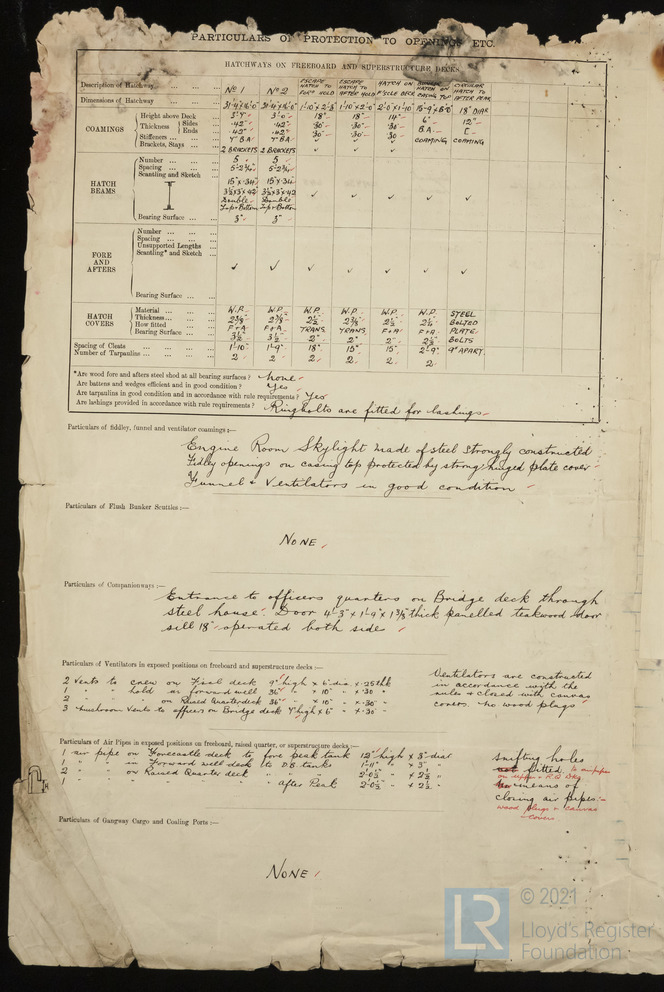 PARTICULARS OF PROTECTION TO OPENINGS ETC.
HATCHWAYS ON FREEBOARD AND SUPERSTRUCTURE DECKS
Description of Hatchway No 1 No 2 ESCAPE HATCH TO FORD HOLD ESCAPE HATCH TO AFTER HOLD HATCH ON F'SCLE DECK BUNKER HATCH ON CASING TOP CIRCULAR HATCH TO AFTER PEAK
Dimensions of Hatchway 18" DIAR
COAMINGS
Height above Deck 3'.0" 18" 18" 14" 6" 12"
Thickness Sides .42" .42" .30" .30" .30" B.A. C-
Ends .42" .42" .30" .30" .30 COAMING COAMING
Stiffeners 7" BA 7" BA ✓ ✓ ✓
Brackets, Stays 2 BRACKETS 2 BRACKETS ✓ ✓ ✓
HATCH BEAMS
Number 5 5
Spacing 5-2¾" 5-2¾"
Scantling and Sketch 15"x.34" 15"x.34"
3½x3"x.42 3½x3"x.42
Double Double
Top & Bottom Top & Bottom
✓ ✓ ✓ ✓ ✓
Bearing Surface 3" 3"
FORE AND AFTERS
Number
Spacing
Unsupported Lengths
Scantling* and Sketch
✓ ✓ ✓ ✓ ✓ ✓ ✓
Bearing Surface
HATCH COVERS
Material W.P. W.P. W.P. W.P. W.P. W.P. STEEL
Thickness 2⅜" 2⅜" 2½" 2⅜" 2½" 2½" BOLTED
How fitted F+A F+A TRANS. TRANS. F+A F+A PLATE
Bearing Surface 3½" 3½" 2" 2" 2" 2½" BOLTS
Spacing of Cleats 1'-10" 1'-9" 18" 15" 15" 2'-9" 9" APART.
Number of Tarpaulins 2 2 2 2 2 2
*Are wood fore and afters steel shod at all bearing surfaces? None
Are battens and wedges efficient and in good condition? Yes
Are tarpaulins in good condition and in accordance with rule requirements? Yes
Are lashings provided in accordance with rule requirements? Ringbolts are fitted for lashings
Particulars of fiddley, funnel and ventilator coamings:—
Engine Room Skylight made of steel strongly constructed
Fidley openings on casing top protected by strong hinged plate cover
Funnel & Ventilators in good condition
Particulars of Flush Bunker Scuttles:—
NONE
Particulars of Companionways:—
Entrance to officers quarters on Bridge deck through
steel house. Door 4'-3" x 1'-9" x 1⅜" thick panelled teakwood door
sill 18" operated both sides
Particulars of Ventilators in exposed positions on freeboard and superstructure decks:—
2 Vents to crew on Focsl deck 9" high x 6" dia x .25 thk
1 " " hold in forward well 36" " x 10" " x .30 "
2 " " " on Raised Quarterdeck 36" " x 10" " x .30 "
3 Mushroom Vents to officers on Bridge deck 9" high x 6" " x .30 "
Ventilators are constructed
in accordance with the
rules & closed with canvas
covers. no wood plugs
Particulars of Air Pipes in exposed positions on freeboard, raised quarter, or superstructure decks:—
1 air pipe on Forecastle deck to fore peak tank 12" high x 3" diar
1 " " in Forward well deck to D.B. tanks 1'-11" " x 3" "
2 " " on Raised Quarter deck " " " 2'-0½" " x 2½ "
1 " " " " " " After Peak 2'-0½" " x 2½ "
Snifting holes
not fitted
means of
closing air pipes:—
wood plugs & canvas
covers
Particulars of Gangway Cargo and Coaling Ports:—
NONE
LR
© 2021
Lloyd's Register
Foundation